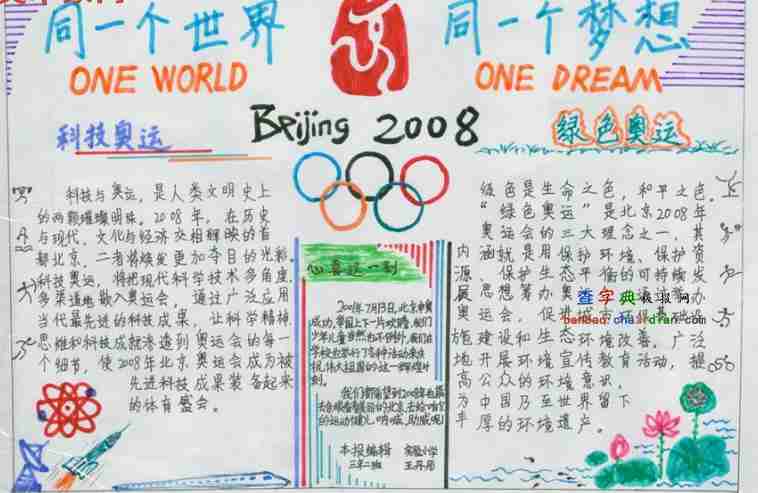 同一个世界
同一个梦想
ONE WORLD
ONE DREAM
Beijing 2008
科技奥运
绿色奥运
科技与奥运，是人类文明史上
的两颗璀璨明珠。2008年，在历史
与现代、文化与经济交相辉映的首
都北京，二者将焕发更加夺目的光彩。
科技奥运，将把现代科学技术多角度、
多渠道地融入奥运会，通过广泛应用
当代最先进的科技成果，让科学精神、
思维和科技成就渗透到奥运会的每一
个细节，使2008年北京奥运会成为被
先进科技成果装备起来
的体育盛会。
心喜这一刻
2001年7月13日，北京申奥
成功，举国上下一片欢腾，我们
少年儿童当然也不例外，我们在
学校也举行了各种活动来庆
祝伟大祖国的这一辉煌时
刻。
我们都盼望到2008年也能
去
看看美丽的北京，去给咱们
的运动健儿呐喊、助威呢！
本报编辑 实验小学
三年二班 王丹彤
绿色是生命之色，和平之色。
“绿色奥运”是北京2008年
奥运会的三大理念之一，其
内涵就是用保护环境、保护资
源、保护生态平衡的可持续发
展思想筹办奥
办
奥运会，促进城市环
基础设
施建设和生态环境改善，广泛
地开展环境宣传教育活动，提
高公众的环境意识，
为中国乃至世界留下
丰厚的环境遗产。
查字典 板报网
banbao.chazidian.com